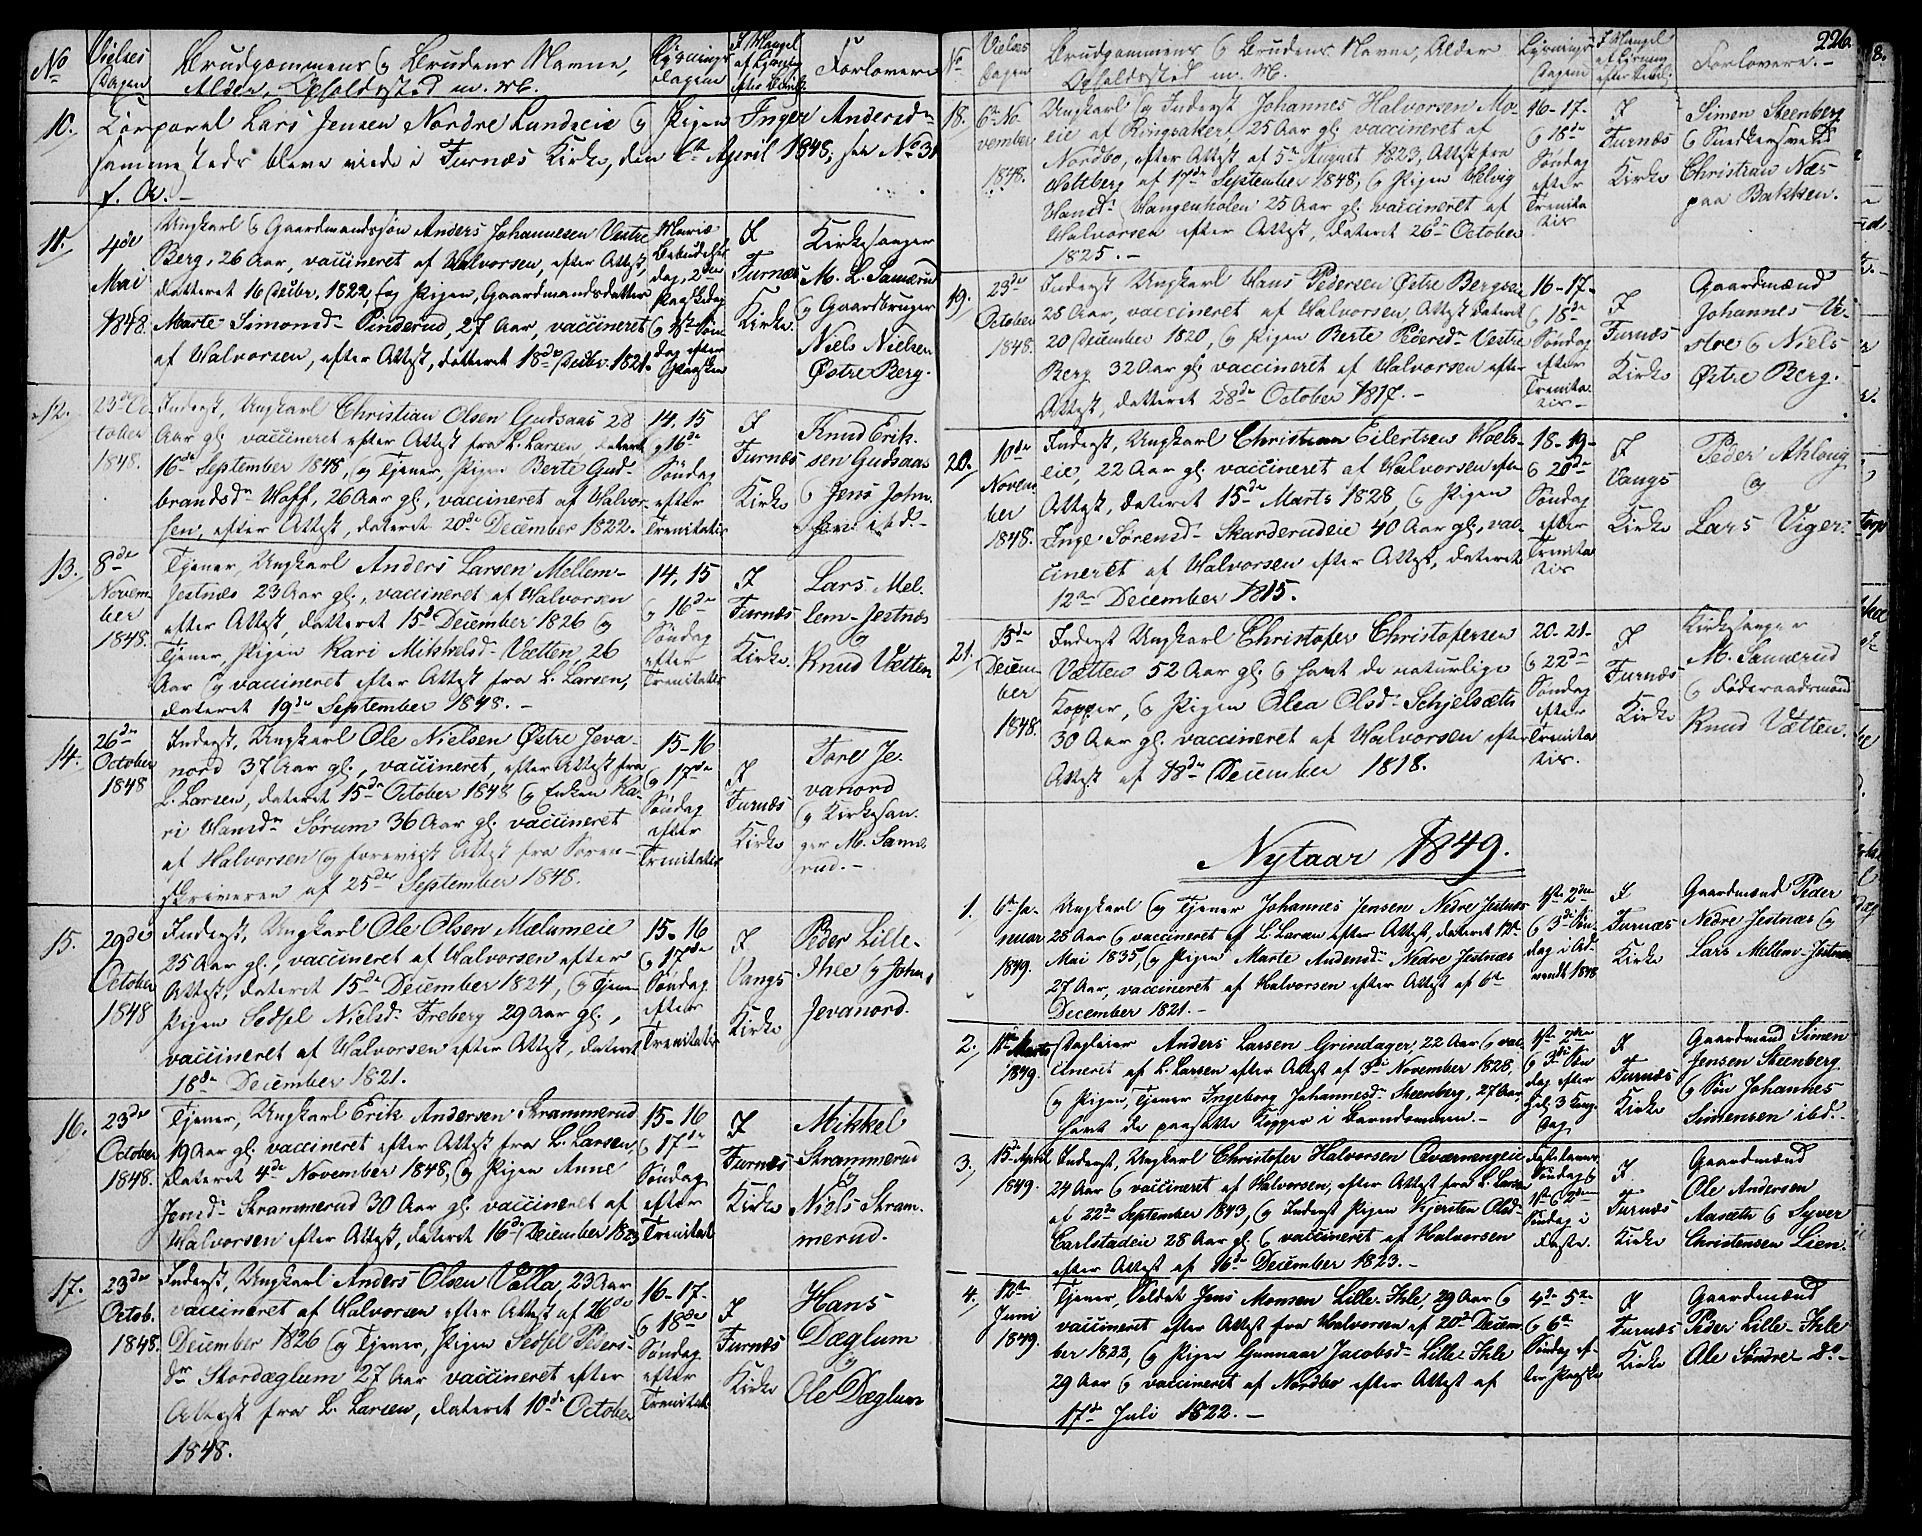 No
Vielses Dagen
Brudgommens og Brudens Navne,
Alder, Opholdssted m. M.
Lysnings Dagene
I Mangel af Lysning efter
Forlovere
10.
Korporal Lars Jensen Nordre Lundeeie og Pigen Inger Andersdr
sammesteds bleve viede i Furnæs Kirke, den April 1848, see No 31
f. A. –
11.
4de
Mai
1848.
Ungkarl og Gaardmandssøn Anders Johannesen Vestre
Berg, 26 Aar, vaccineret af Halvorsen, efter Attest,
datteret 16 Decbr. 1822, og Pigen, Gaardmandsdatter
Marte Simonsdr Pinderud, 27 Aar, vaccineret
af Halvorsen, efter Attest, datteret 18de Decbr. 1821.
Mariæ
Bebudelses
dag, 2den
Paaskedag
og 1ste Søn-
dag efter
Paasken
I
Furnæs
Kirke.
Kirkesanger
M. L. Samerud
og Gaardbruger
Niels Nielsen
Østre Berg.
12.
23de Oc
tober
1848.
Inderst, Ungkarl Christian Olsen Gudsaas 28
Aar gl. vaccineret efter Attest fra L. Larsen, dateret
16de September 1848, og Tjener, Pigen Berte Gud-
brandsdr Hoff, 26 Aar gl., vaccineret af Halvor-
sen, efter Attest, dateret 20de December 1822.
14, 15
og 16de
Søndag
efter
Trinitatis
I
Furnæs
Kirke
Knud Erik-
sen Gudsaas
og Jens John-
sen ibd.
13.
8de
Novem-
ber
1848.
Tjener, Ungkarl Anders Larsen Mellem-
Jestnæs 23 Aar gl., vaccineret af Halvorsen
efter Attest, datteret 15de December 1826 og
Tjener, Pigen Kari Mikkelsdr Vætten 26
Aar og vaccineret efter Attest fra L. Larsen,
dateret 19de September 1848. –
14, 15
og 16de
Søndag
efter
Trinitatis
I
Furnæs
Kirke.
Lars Mel-
lem-Jestnæs
og
Knud Vætten
14.
26de
October
1848
Inderst, Ungkarl Ole Nielsen Østre Jeva-
nord 37 Aar gl., vaccineret, efter Attest fra
L. Larsen, dateret 15de October 1848 og Enken Ka-
ri Hansdr Sørum 36 Aar gl. vaccineret
af Halvorsen og forevist Attest fra Soren-
skriveren af 25de September 1848.
15-16
og 17de
Søndag
efter
Trinitatis
I
Furnæs
Kirke
Tore Je-
vanord
og Kirkesan-
ger M. Same-
rud. –
15.
29de
October
1848
Inderst, Ungkarl Ole Olsen Mælumeie
25 Aar gl., vaccineret af Halvorsen efter
Attest, dateret 15de December 1824, og Tjener
Pigen Sedsel Nielsdr Freberg 29 Aar gl.,
vaccineret af Halvorsen efter Attest, dateret
18de December 1821.
15-16
og 17de
Søndag
efter
Trinitatis
I
Vangs
Kirke
Peder Lille-
Ihle og John
Jevanord.
16.
23de
October
1848.
Tjener, Ungkarl Erik Andersen Skrammerud
19 Aar gl. vaccineret efter Attest fra L. Larsen,
dateret 4de November 1848, og Pigen Anne
Jensdr Skrammerud 30 Aar gl. vaccineret af
Halvorsen efter Attest, dateret 16de December 1823
15-16
og 17de
Søndag
efter
Trinitatis
I
Furnæs
Kirke
Mikkel
Skrammerud
og
Niels Skram-
merud.
17.
23de
Octob.
1848.
Inderst, Ungkarl Anders Olsen Valla, 23 Aar
vaccineret af Halvorsen efter Attest af 26de
December 1826 og Tjener, Pigen Sedsel Peders-
dr Stordæglum 27 Aar vaccineret efter
Attest fra L. Larsen, dateret 10de October
1848.
16-17-
og 18de
Søndag
efter
Trinitatis
I
Furnæs
Kirke
Hans
Dæglum
og
Ole Dæglum
226.
No
Vielses Dagen
Brudgommens og Brudens Navne, Alder
Opholdssted m. M.
Lysnings Dagene
I Mangel af Lysning efter
Forlovere. –
18.
6te No
vember
1848.
Ungkarl og Inderst Johannes Halvorsen Mo-
eie af Ringsaker, 25 Aar gl. vaccineret af
Nordbo, efter Attest af 5te August 1823, Attest fra
Holtberg af 17de September 1848, og Pigen Helvig
Hansdr Vangenholen 25 Aar gl. vaccineret af
Halvorsen efter Attest, dateret 26de October
1825. –
16-17-
og 18de
Søndag
efter
Trinita
tis
I
Furnæs
Kirke
Simen Steenberg
og Snedkersvend
Christian Næs
paa Bakken.
19.
23de
October
1848.
Inderst Ungkarl Hans Pedersen Østre Bergseie
25 Aar, vaccineret af Halvorsen, Attest dateret
20 December 1820, og Pigen Berte Pedersdr Vestre
Berg 32 Aar gl. vaccineret af Halvorsen efter
Attest, datteret 28de October 1817. –
16-17-
og 18de
Søndag
efter
Trinita-
tis –
I
Furnæs
Kirke
Gaardmænd
Johannes Ve-
stre og Niels
Østre Berg.
20.
10de
Novem
ber
1848.
Inderst, Ungkarl Christian Eilertsen Hoels-
eie, 22 Aar gl. vaccineret af Halvorsen efter
Attest, dateret 15de Marts 1828, og Pigen
Inge Sørensdr Skarderudeie 40 Aar gl., vac-
cineret af Halvorsen efter Attest, dateret
12te December 1815.
18-19-
og 20de
Søndag
efter
Trinita
tis
I
Vangs
Kirke
Peder Ahloug
og
Lars Viger.
21.
15de
Decem-
ber
1848.
Inderst Ungkarl Christofer Christofersen
Vætten 52 Aar gl. og havt de naturlige
Kopper, og Pigen Olea Olsdr Schjelsæth
30 Aar gl. vaccineret af Halvorsen efter
Attest af 18de December 1818.
20-21-
og 22de
Søndag
efter
Trinita
tis.
I
Furnæs
Kirke
Kirkesanger
M. Samerud
og Føderaadsmand
Knud Vætten.
Nytaar 1849.
1.
6te Ja-
nuar
1849.
Ungkarl og Tjener Johannes Jensen Nedre Jestnæs
28 Aar og vaccineret af L. Larsen efter Attest, dateret
Mai 1835, og Pigen Marte Andersdr Nedre Jestnæs
27 Aar, vaccineret af Halvorsen efter Attest af 6te
December 1821. –
1ste 2den
og 3die Søn-
dag i Ad-
vendt 1848
I
Furnæs
Kirke
Gaardmænd Peder
Nedre Jestnæs og
Lars Mellem-Jestnæs
2.
Marts
1849.
Anders Larsen Grindager, 22 Aar og vac-
cineret af L. Larsen efter Attest af 3die November 1828,
og Pigen, Tjener Ingeborg Johannesdr Steenberg, 27 Aar
havt de paasatte Kopper i Barndommen. –
1ste 2den
og 3die Søn
dag efter
Hel. 3 Kong.
Dag.
I
Furnæs
Kirke
Gaardmand Simen
Jensen Steenberg
og Søn Johannes
Simensen ibd. –
3.
15de April
1849.
Inderst, Ungkarl Christofer Halvorsen Qværnengeie
24 Aar og vaccineret af Halvorsen, efter Attest fra L. Larsen
af 22de September 1843, og Inderst Pigen Kjersten Olsdr
Carlstadeie 28 Aar gl. og vaccineret af Halvorsen
efter Attest af 16de December 1823. –
Fastelavns
Søndag og
1ste og 2den
Søndag i
Faste.
I
Furnæs
Kirke
Gaardmænd
Ole Andersen
Aasæth og Syver
Christensen Lien.
4.
12te
Juni
1849.
Tjener, Soldat Jens Monsen Lille-Ihle, 29 Aar og
vaccineret efter Attest fra Halvorsen af 20de Decem-
ber 1822, og Pigen Gunnaar Jacobsdr Lille-Ihle
29 Aar og vaccineret af Nordbo efter Attest af
17de Juli 1822. –
4de 5te
og 6te
Søndag ef-
ter Paaske
I
Furnæs
Kirke
Gaardmænd
Peder Lille-Ihle
Ole Søndre Do –